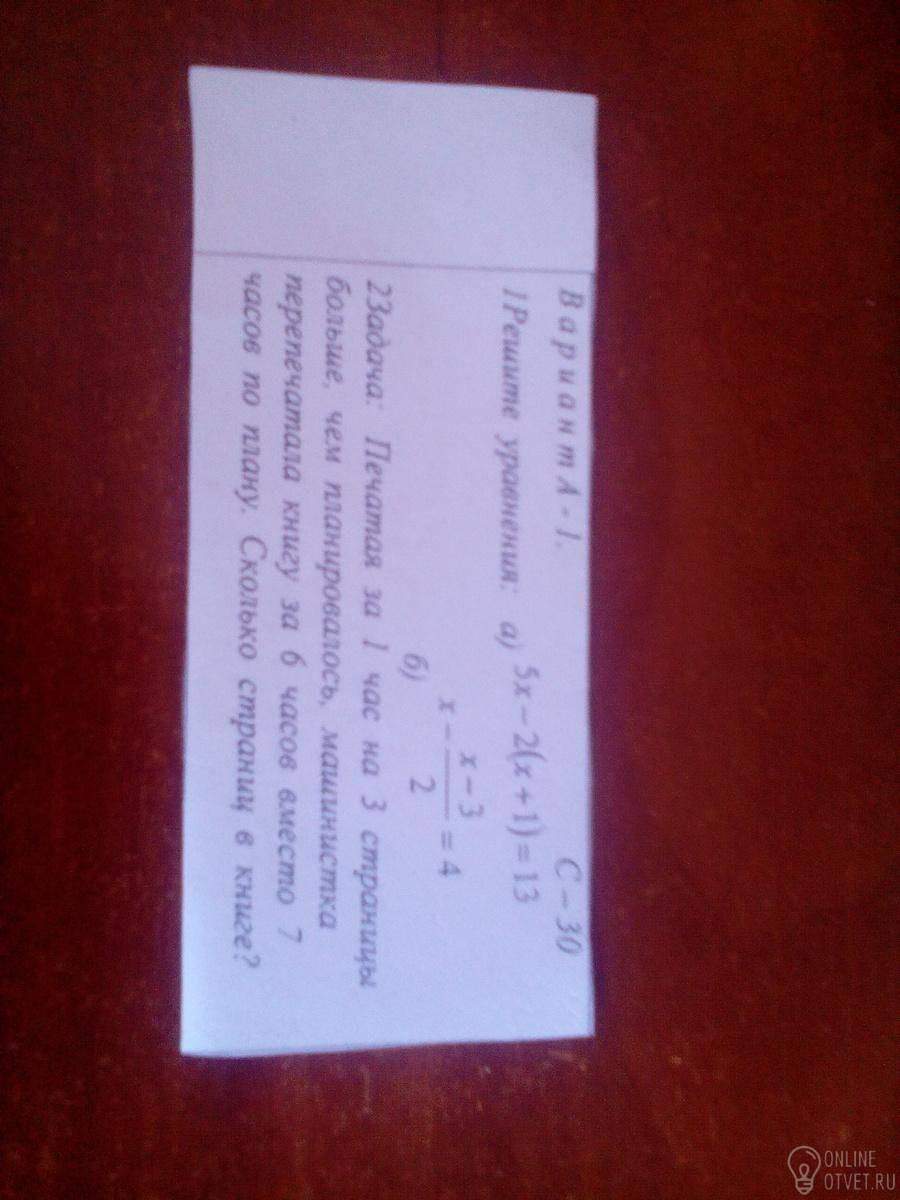 Вариант А-1. С – 30
1Решите уравнения: а) 5x – 2(x + 1) = 13
б) x – \frac{x – 3}{2} = 4
2Задача: Печатая за 1 час на 3 страницы
больше, чем планировалось, машинистка
перепечатала книгу за 6 часов вместо 7
часов по плану. Сколько страниц в книге?
ONLINE
OTVET.RU